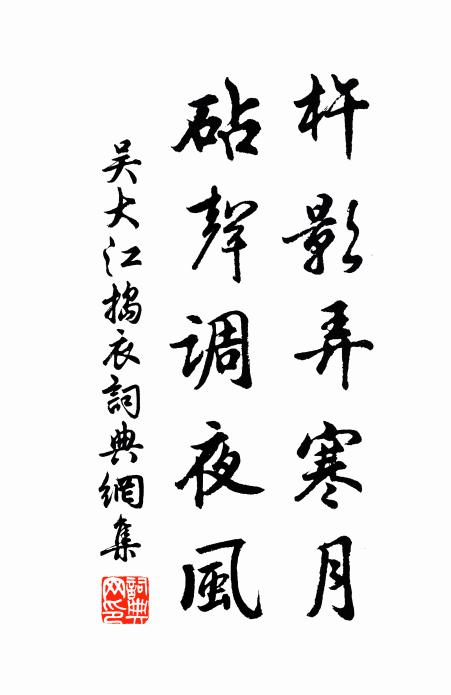 杵影弄寒月
砧聲調夜風
吴大江擣衣詞典網集
詞典網印